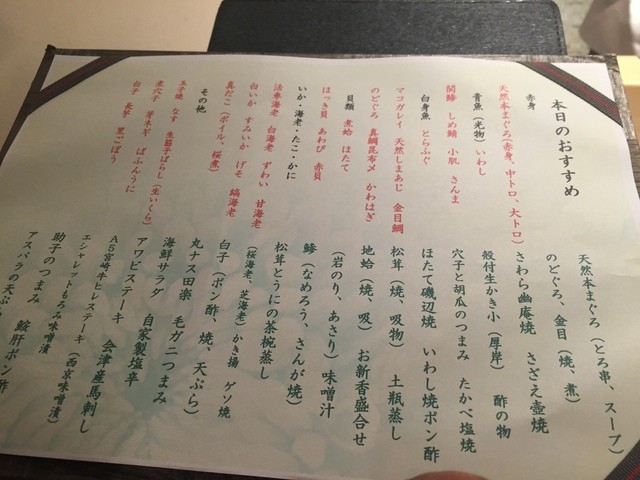 本日のおすすめ
赤身
天然本まぐろ(赤身、中トロ、大トロ)
青魚(光物) いわし
関鯵 しめ鯖 小肌 さんま
白身魚 とらふぐ
マコガレイ 天然しまあじ 金目鯛
のどぐろ 真鯛昆布〆 かわはぎ
貝類 煮蛤 ほたて
ほっき貝 あわび 赤貝
いか・海老・たこ・かに
活車海老 白海老 ずわい 甘海老
白いか すみいか げそ 縞海老
真だこ(ボイル、桜煮)
その他
玉子焼 なす 生筋子ばらし(生いくら)
煮穴子 芽ネギ ばふんうに
白子 長芋 黒ごぼう
天然本まぐろ(とろ串、スープ)
のどぐろ、金目(焼、煮)
さわら幽庵焼 さざえ壺焼
殻付生かき小(厚岸) 酢の物
穴子と胡瓜のつまみ たかべ塩焼
ほたて磯辺焼 いわし焼ポン酢
松茸(焼、吸物) 土瓶蒸し
地蛤(焼、吸) お新香盛合せ
(岩のり、あさり)味噌汁
鯵(なめろう、さんが焼)
松茸とうにの茶椀蒸し
(桜海老、芝海老)かき揚 ゲソ焼
白子(ポン酢、焼、天ぷら)
丸ナス田楽 毛ガニつまみ
海鮮サラダ 自家製塩辛
アワビステーキ 会津産馬刺し
A5宮崎牛ヒレステーキ(西京味噌漬)
エシャレットもろみ味噌漬
助子のつまみ 鮟肝ポン酢
アスパラの天ぷら